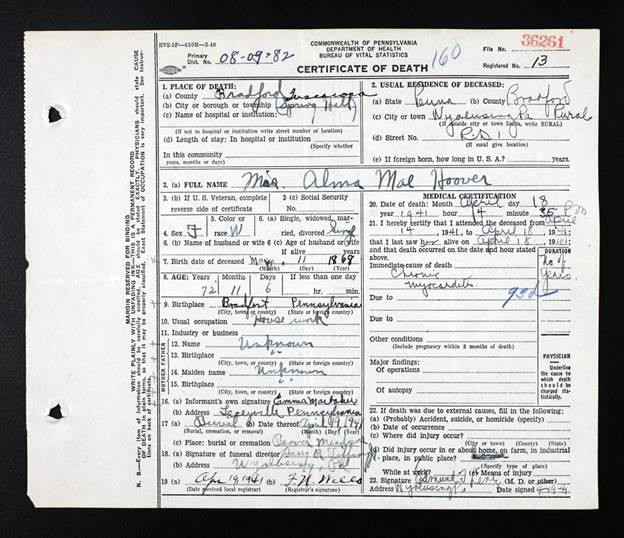 HVS-5P-650M-3-40
COMMONWEALTH OF PENNSYLVANIA
DEPARTMENT OF HEALTH
BUREAU OF VITAL STATISTICS
CERTIFICATE OF DEATH
160
File No. 36261
Registered No. 13
Primary Dist. No. 08-09-82
MARGIN RESERVED FOR BINDING
WRITE PLAINLY WITH UNFADING INK—THIS IS A PERMANENT RECORD
1. PLACE OF DEATH:
(a) County Bradford
(b) City or borough or township (Spring Hill)
(c) Name of hospital or institution:
(If not in hospital or institution write street number or location)
(d) Length of stay: In hospital or institution
In this community
years, months or days
2. USUAL RESIDENCE OF DECEASED:
(a) State Penna (b) County Bradford
(c) City or town Wyalusing Pa Rural
(If outside city or town limits, write RURAL)
(d) Street No. RD 1
(If rural give location)
(e) If foreign born, how long in U. S. A.? years
3. (a) FULL NAME Miss. Alma Mae Hoover
3. (b) If U. S. Veteran, complete reverse side of certificate
3. (c) Social Security No.
4. Sex F
5. Color or race W
6. (a) Single, widowed, married, divorced Single
6. (b) Name of husband or wife
6. (c) Age of husband or wife if alive years
7. Birth date of deceased May 11 1868
(Month) (Day) (Year)
8. AGE: Years Months Days If less than one day
72 11 6 hr. min.
9. Birthplace Bradfort Pennsylvania
(City, town, or county) (State or foreign country)
10. Usual occupation House work
11. Industry or business
FATHER
12. Name Unknown
13. Birthplace "
(City, town, or county) (State or foreign country)
MOTHER
14. Maiden name Unknown
15. Birthplace "
(City, town, or county) (State or foreign country)
16. (a) Informant's own signature Emma
(b) Address Laceyville Pennsylvania
17. (a) Burial (b) Date thereof April 19 1941
(Burial, cremation, or removal) (Month) (Day) (Year)
(c) Place: burial or cremation
18. (a) Signature of funeral director
(b) Address Wyalusing, Pa
19. (a) Apr 19, 1941 (b) F. W. Wells
(Date received local registrar) (Registrar's signature)
MEDICAL CERTIFICATION
20. Date of death: Month April day 18
year 1941 hour 14 minute 35
21. I hereby certify that I attended the deceased from April
14, 1941, to April 18, 1941
that I last saw her alive on April 18, 1941
and that death occurred on the date and hour stated above.
Immediate cause of death
Duration
Chronic
myocarditis
Due to 93d
Due to
Other conditions
(Include pregnancy within 3 months of death)
Major findings:
Of operations
Of autopsy
PHYSICIAN
Underline the cause to which death should be charged statistically.
22. If death was due to external causes, fill in the following:
(a) (Probably) Accident, suicide, or homicide (specify)
(b) Date of occurrence
(c) Where did injury occur?
(City or town) (County) (State)
(d) Did injury occur in or about home, on farm, in industrial place, in public place?
(Specify type of place)
While at work? (e) Means of injury
23. Signature (M. D. or other)
Address Wyalusing Date signed